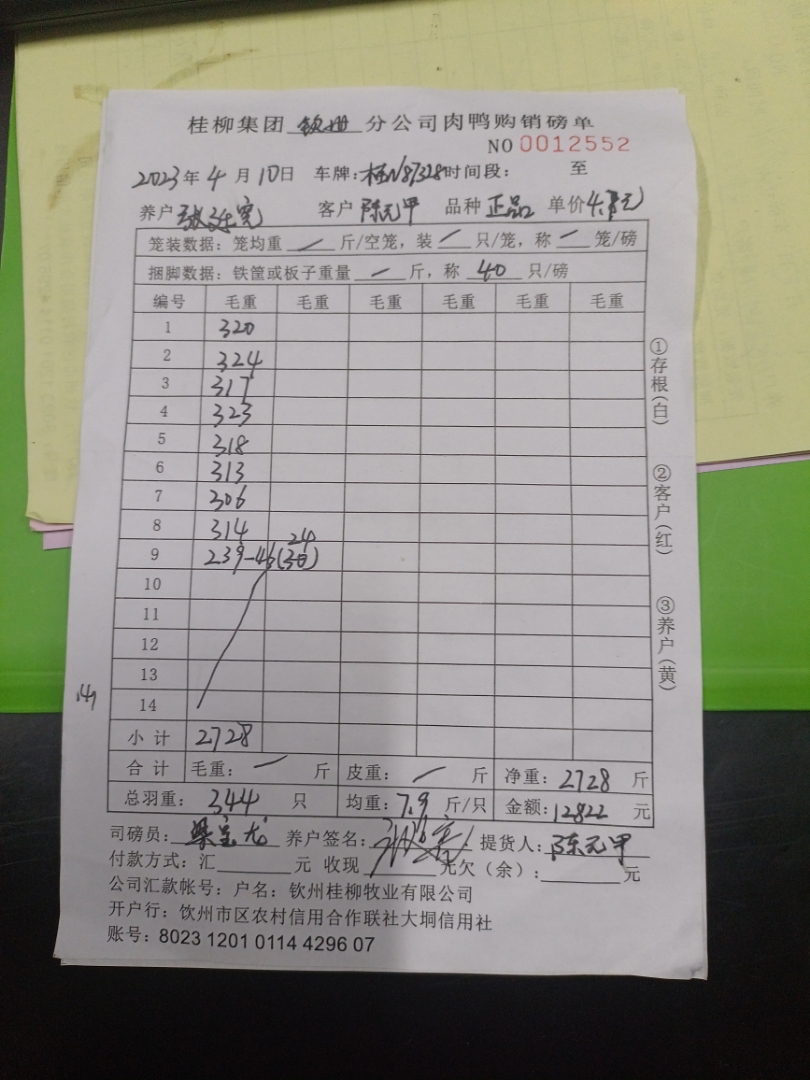 桂柳集团 钦州 分公司肉鸭购销磅单
NO 0012552
2023年4月10日 车牌:桂N87328 时间段: 至
养户 客户 陈元甲 品种 正品 单价 4.7元
笼装数据:笼均重 一 斤/空笼,装 一 只/笼,称 一 笼/磅
捆脚数据:铁筐或板子重量 一 斤,称 40 只/磅
编号 毛重 毛重 毛重 毛重 毛重 毛重
1 320
2 324
3 317
4 323
5 318
6 313
7 306
8 314
24
9 239-46
10
11
12
13
14
小计 2728
合计 毛重: 一 斤 皮重: 一 斤 净重: 2728 斤
总羽重: 344 只 均重: 7.9 斤/只 金额: 12822 元
司磅员: 养户签名: 提货人: 陈元甲
付款方式:汇 元 收现 元欠(余): 元
公司汇款帐号:户名:钦州桂柳牧业有限公司
开户行:饮州市区农村信用合作联社大垌信用社
账号:8023 1201 0114 4296 07
①存根(白)
②客户(红)
③养户(黄)